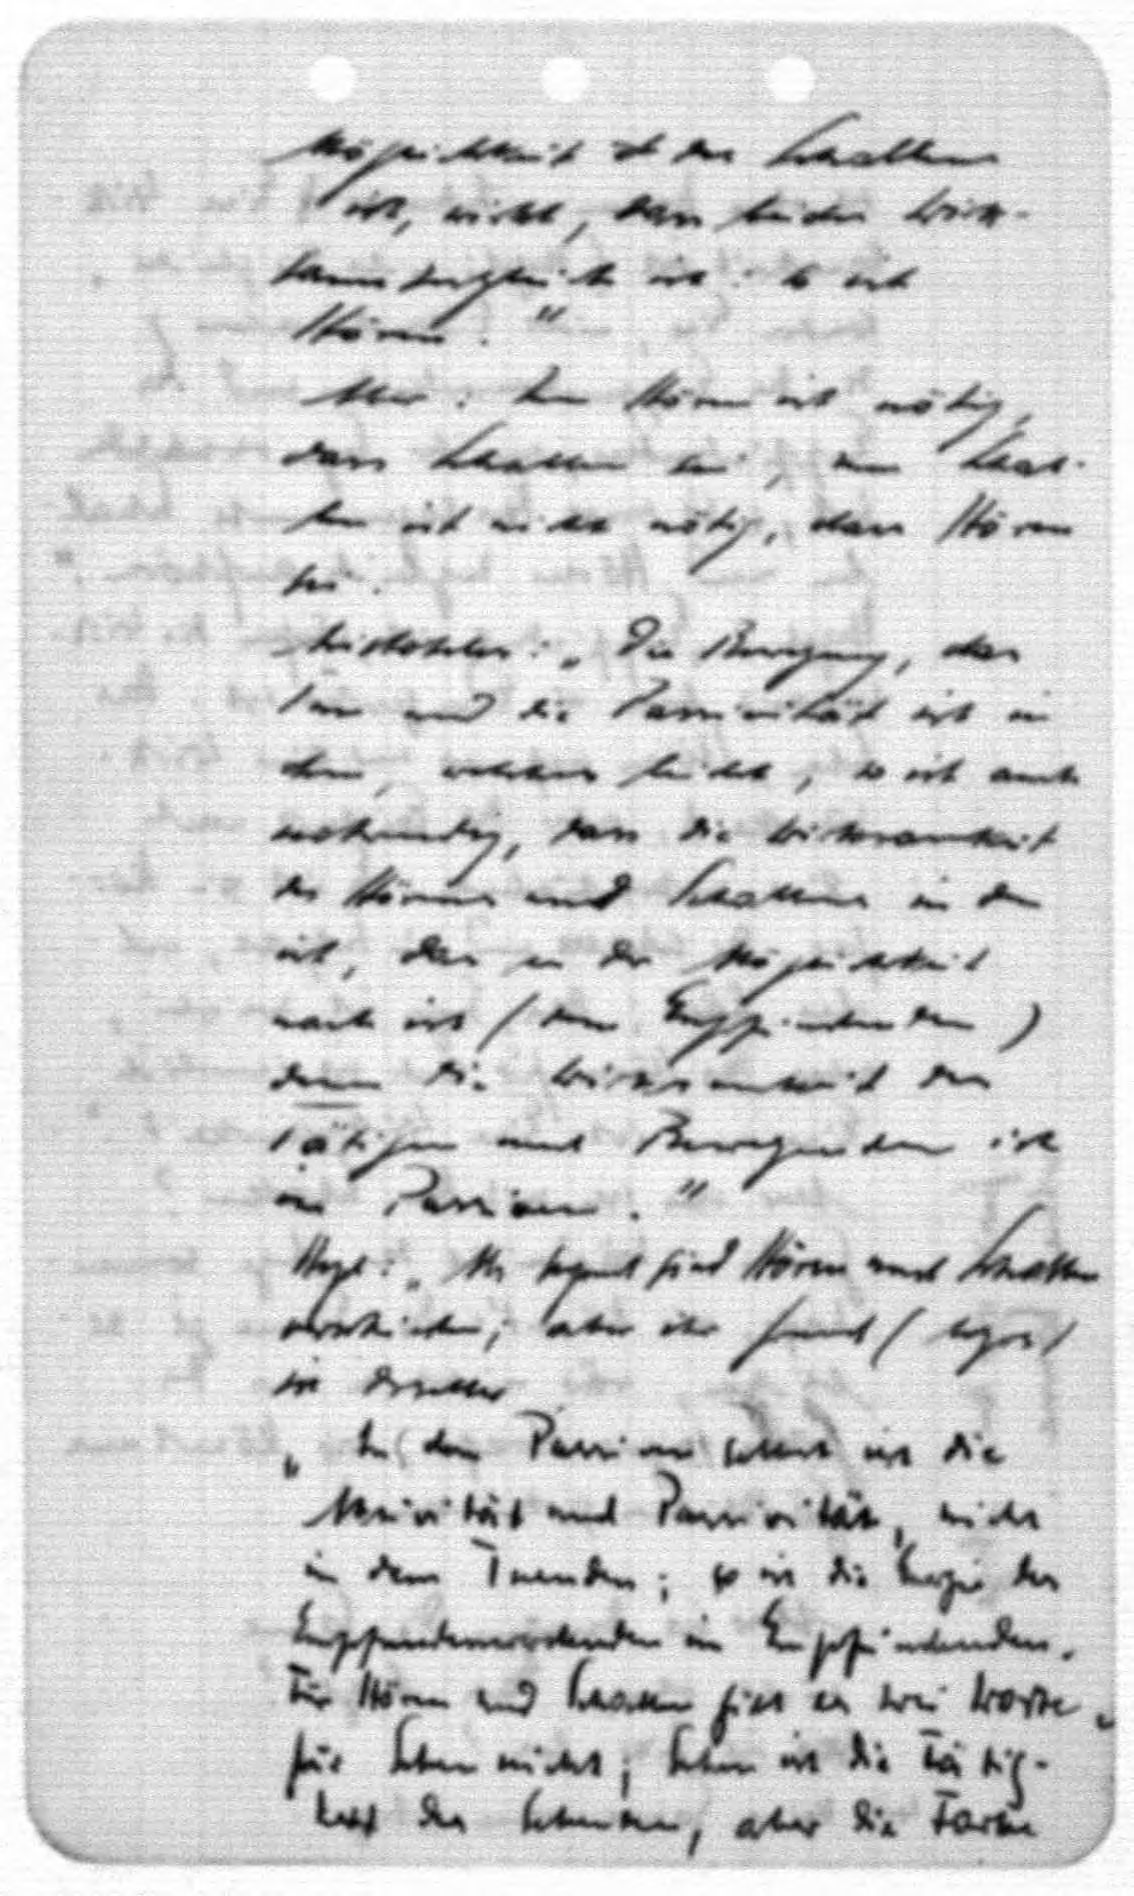 Möglichkeit des Schallens
ist, wirkt, dann beider Wirk-
samkeit zugleich ist: so ist
Hören."
Aber: zum Hören ist nötig,
dass Schallen sei, zum Schal-
len ist nicht nötig, dass Hören
sei.
Aristoteles: „Die Bewegung, das
Tun und die Passivität ist in
dem, welches leidet, so ist auch
notwendig, dass die Wirksamkeit
des Hörens und Schallens in dem
ist, das in der Möglichkeit
nach ist (dem Empfindenden)
denn die Wirksamkeit des
Tätigen und Bewegenden ist
im Passiven."
Hegel: „Als seyend sind Hören und Schallen
verschieden; aber ihr Grund (logos)
ist derselbe
„In dem Passiven selbst ist die
Aktivität und Passivität, nicht
in dem Tuenden; so ist die Energie des
Empfundenwerdenden im Empfindenden.
Für Hören und Schallen gibt es zwei Worte,
für Sehen nicht; Sehen ist die Tätig-
keit des Sehenden, aber die Farbe